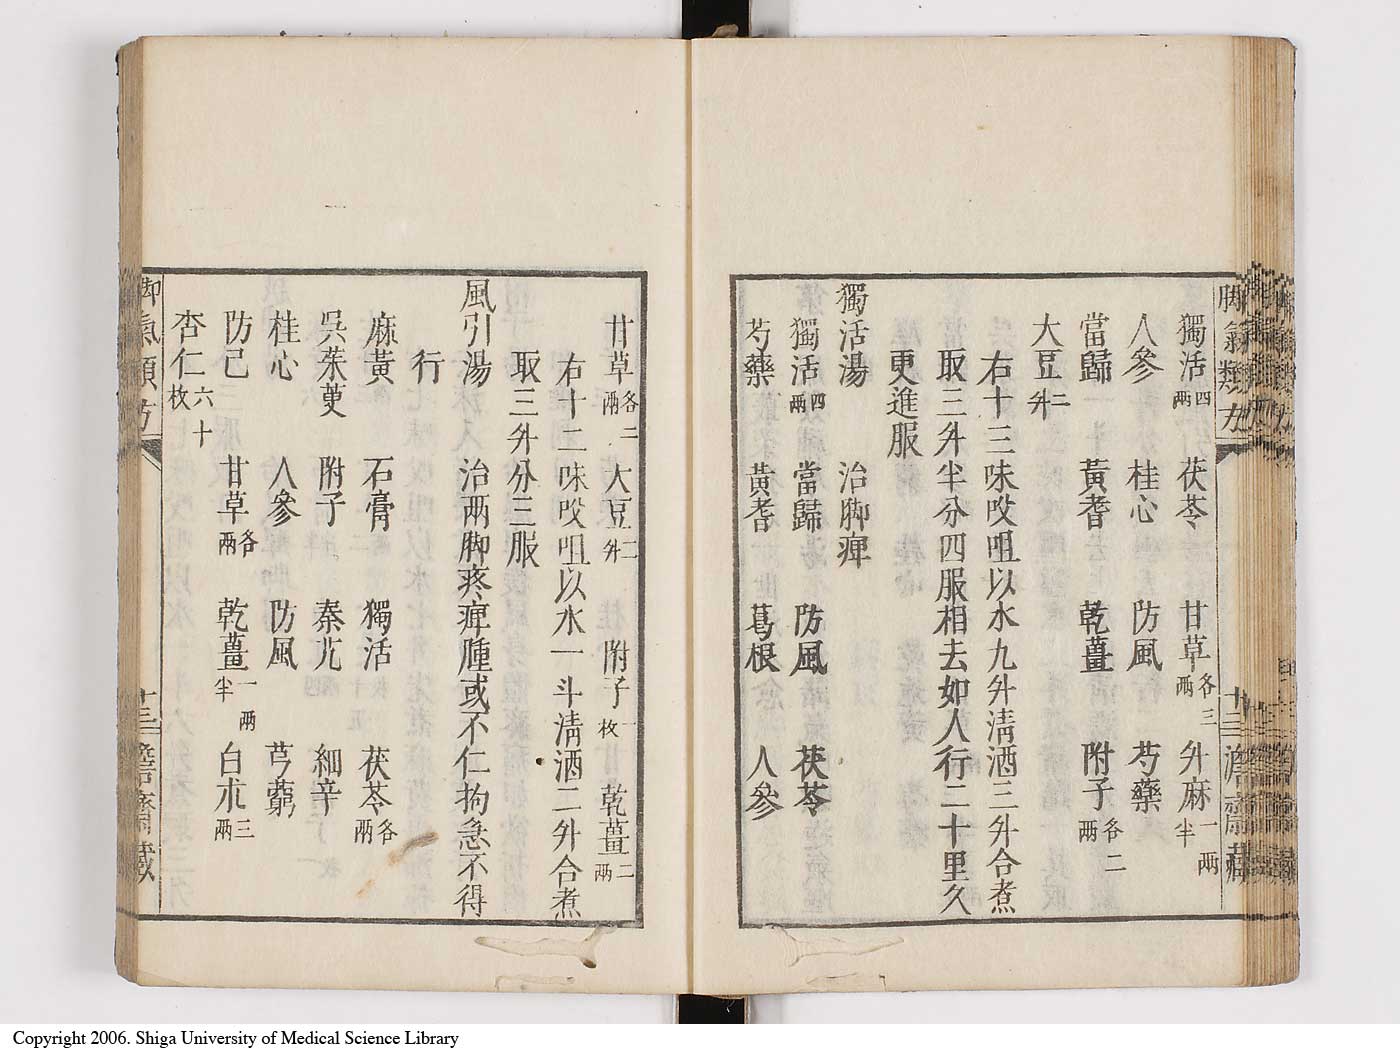 獨活四兩 茯苓 甘草各三兩 升麻一兩半
人參 桂心 防風 芍藥
當歸 黃耆 乾薑 附子各二兩
大豆二升
右十三味㕮咀以水九升清酒三升合煮
取三升半分四服相去如人行二十里久
更進服
獨活湯 治脚痺
獨活四兩 當歸 防風 茯苓
芍藥 黃耆 葛根 人參
甘草各二兩 大豆二升 附子一枚 乾薑二兩
右十二味㕮咀以水一斗清酒二升合煮
取三升分三服
風引湯 治兩脚疼痺腫或不仁拘急不得
行
麻黃 石膏 獨活 茯苓各兩
吳茱萸 附子 秦艽 細辛
桂心 人參 防風 芎藭
防己 甘草各兩 乾薑一兩半 白朮三兩
杏仁六十枚
脚氣類方 十二 澹齋藏
脚氣類方 十三 澹齋藏
Copyright 2006. Shiga University of Medical Science Library